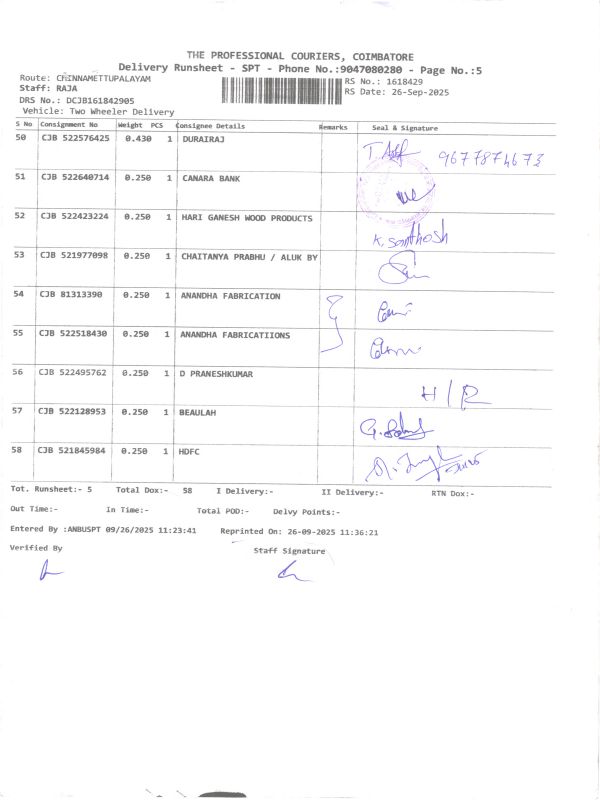 THE PROFESSIONAL COURIERS, COIMBATORE
Delivery Runsheet - SPT - Phone No.:9047080280 - Page No.:5
Route: CHINNAMETTUPALAYAM RS No.: 1618429
Staff: RAJA RS Date: 26-Sep-2025
DRS No.: DCJB161842905
Vehicle: Two Wheeler Delivery
S No Consignment No Weight PCS Consignee Details Remarks Seal & Signature
50 CJB 522576425 0.430 1 DURAIRAJ 9677874673
51 CJB 522640714 0.250 1 CANARA BANK
52 CJB 522423224 0.250 1 HARI GANESH WOOD PRODUCTS K. Santhosh
53 CJB 521977098 0.250 1 CHAITANYA PRABHU / ALUK BY
54 CJB 81313390 0.250 1 ANANDHA FABRICATION
55 CJB 522518430 0.250 1 ANANDHA FABRICATIIONS
56 CJB 522495762 0.250 1 D PRANESHKUMAR H/R
57 CJB 522128953 0.250 1 BEAULAH
58 CJB 521845984 0.250 1 HDFC
Tot. Runsheet:- 5 Total Dox:- 58 I Delivery:- II Delivery:- RTN Dox:-
Out Time:- In Time:- Total POD:- Delvy Points:-
Entered By :ANBUSPT 09/26/2025 11:23:41 Reprinted On: 26-09-2025 11:36:21
Verified By Staff Signature